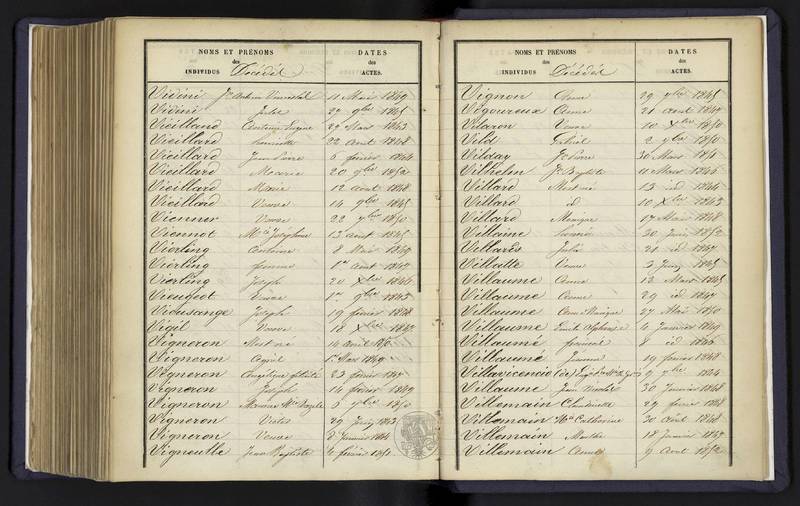 NOMS ET PRÉNOMS
des
INDIVIDUS Décédés
DATES
des
ACTES.
Vidéni 11 Mars 1849
Vidéni Julie 27 9bre 1845
Vieilland Antoine Eugène 27 Mars 1843
Vieillard Henriette 22 Aout 1848
Vieillard Jean Pierre 6 février 1844
Vieillard Marie 20 9bre 1852
Vieillard Marie 12 aout 1848
Vieillard Veuve 14 9bre 1845
Vienner Veuve 22 1850
Viennot Mie Joséphine 13 aout 1845
Vierling Antoine 8 Mai 1849
Vierling femme 1er aout 1847
Vierling Joseph 20 Xbre 1844
Vieugeot Veuve 1er 9bre 1843
Vieusange Joseph 19 février 1848
Vigil Veuve 18 Xbre 1847
Vigneron Mort né 14 avril 1850
Vigneron 1er Mars 1849
Vigneron Angélique félicité 23 février 1847
Vigneron Joseph 14 février 1849
Vigneron 1850
Vigneron 29 Juin 1843
Vigneron Veuve 8 Janvier 1844
Vigneulle Jean Baptiste 4 février 1851
NOMS ET PRÉNOMS
des
INDIVIDUS Décédés
DATES
des
ACTES.
Vignon Anne 29 7bre 1845
Vigoureux Anne 21 aout 1847
Vilaron Veuve 10 Xbre 1850
Vild 2 7bre 1850
Vilday Jn Pierre 30 Mars 1851
Vilhelm Jn Baptiste 11 Mars 1846
Villard Mort né 13 id 1844
Villard id 10 Xbre 1843
Villard Monique 17 Mai 1848
Villaine 30 Juin 1852
Villarès Julie 21 id 1847
Villatte Veuve 3 Juin 1845
Villaume Anne 13 Mars 1845
Villaume Anne 29 id 1847
Villaume Anne Monique 27 Mai 1850
Villaume Emile Alphonse 4 Janvier 1849
Villaume 8 id 1846
Villaume Jeanne 19 février 1848
Villavicencio 9 7bre 1844
Villaume Jean Nicolas 30 Janvier 1848
Villemain Claudinette 29 février 1848
Villemain Mie Catherine 30 Août 1848
Villemain Marthe 18 Janvier 1847
Villemain Anne 9 Aout 1852